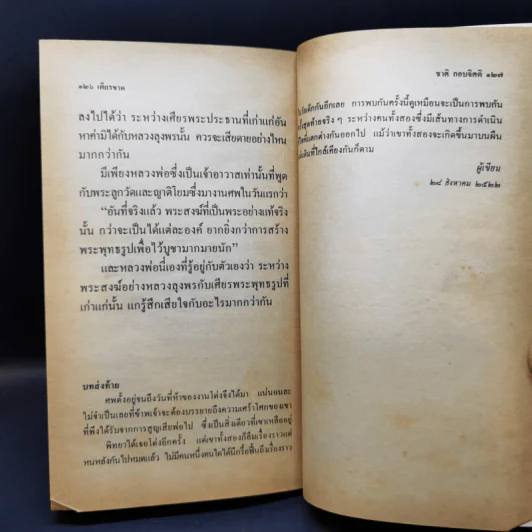 ๑๒๖ เศียรขาด
ลงไปได้ว่า ระหว่างเศียรพระประธานที่เก่าแก่อัน
หาค่ามิได้กับหลวงลุงพรนั้น ควรจะเสียดายอย่างไหน
มากกว่ากัน
มีเพียงหลวงพ่อซึ่งเป็นเจ้าอาวาสเท่านั้นที่พูด
กับพระลูกวัดและญาติโยมซึ่งมางานศพในวันแรกว่า
“อันที่จริงแล้ว พระสงฆ์ที่เป็นพระอย่างแท้จริง
นั้น กว่าจะเป็นได้แต่ละองค์ ยากยิ่งกว่าการสร้าง
พระพุทธรูปเพื่อไว้บูชามากมายนัก”
และหลวงพ่อนี้เองที่รู้อยู่กับตัวเองว่า ระหว่าง
พระสงฆ์อย่างหลวงลุงพรกับเศียรพระพุทธรูปที่
เก่าแก่นั้น แกรู้สึกเสียใจกับอะไรมากกว่ากัน
บทส่งท้าย
ศพตั้งอยู่จนถึงวันที่ห้าของงานโต่งจึงได้มา แน่นอนละ
ไม่จำเป็นเลยที่ข้าพเจ้าจะต้องบรรยายถึงความเศร้าโศกของเขา
ที่พึงได้รับจากการสูญเสียพ่อไป ซึ่งเป็นสิ่งเดียวที่เขาเหลืออยู่
พิทยาได้เจอโต่งอีกครั้ง แต่เขาทั้งสองก็ลืมเรื่องราวแต่
หนหลังกันไปหมดแล้ว ไม่มีคนหนึ่งคนใดได้นึกรื้อฟื้นถึงเรื่องราว
ชาติ กอบจิตติ ๑๒๗
กันอีกเลย การพบกันครั้งนี้ดูเหมือนจะเป็นการพบกัน
สุดท้ายจริง ๆ ระหว่างคนทั้งสองซึ่งมีเส้นทางการดำเนิน
แตกต่างกันออกไป แม้ว่าเขาทั้งสองจะเกิดขึ้นมาบนผืน
ที่ใกล้เคียงกันก็ตาม
ผู้เขียน
๒๘ สิงหาคม ๒๕๒๒